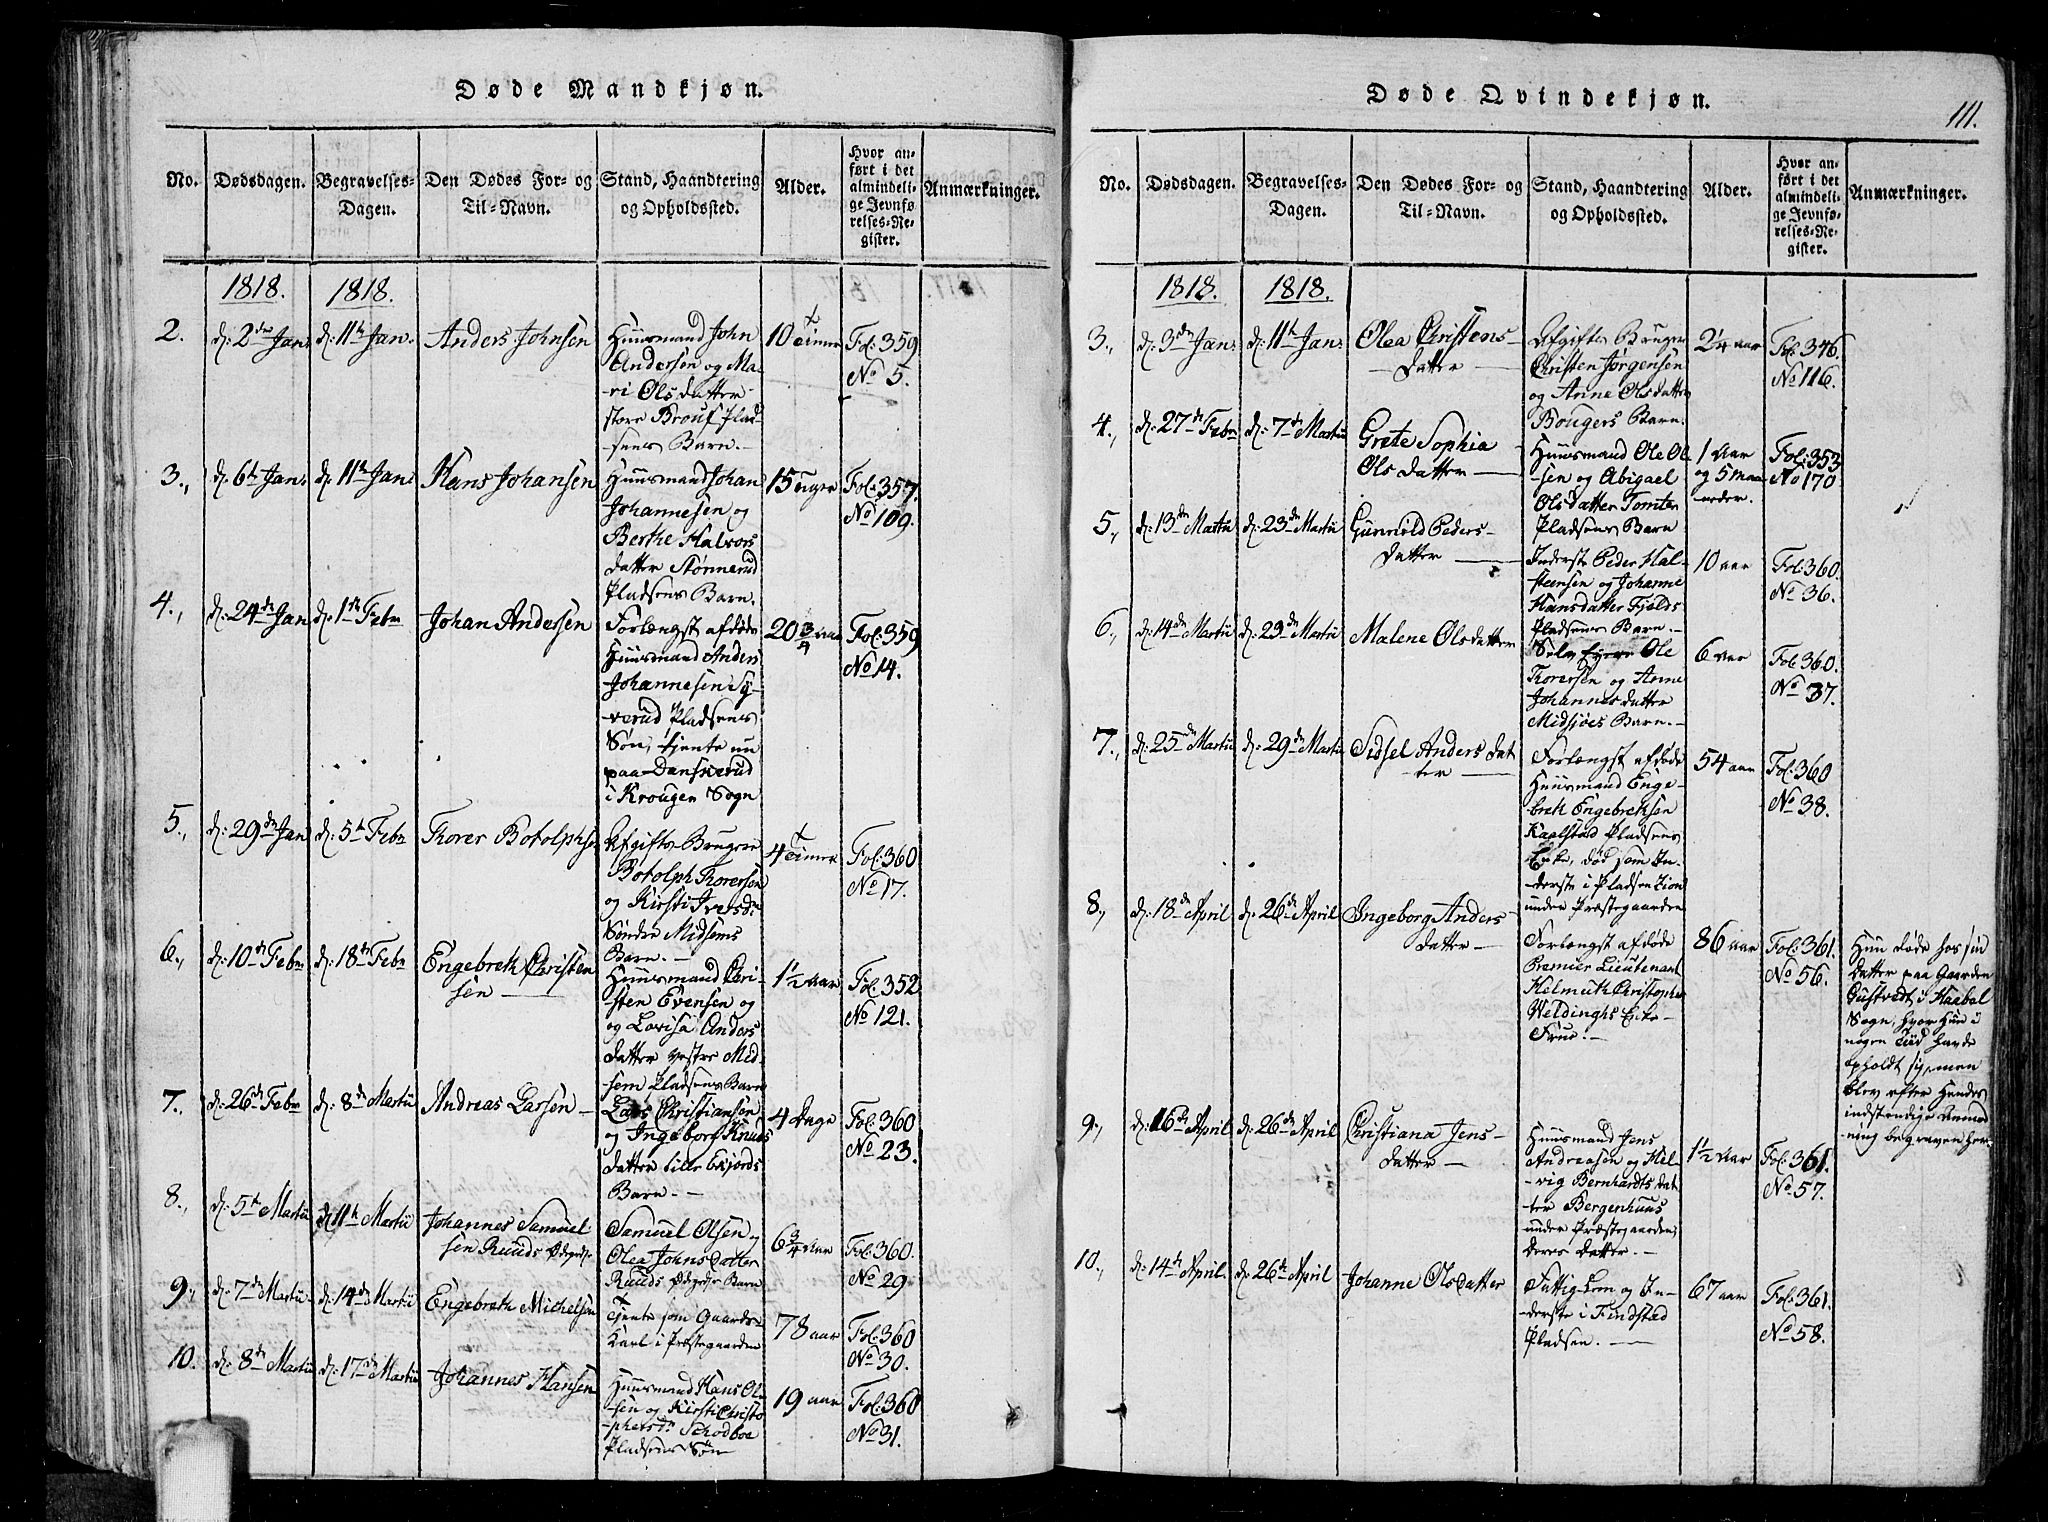 Døde Mandkjøn.
No.
Dødsdagen.
Begravelses-
Dagen.
Den Dødes For- og
Til-Navn.
Stand, Haandtering
og Opholdssted.
Alder.
Hvor an-
ført i det
almindeli-
ge Jevnfø-
relses-Re-
gister.
Anmærkninger.
1818.
1818.
2.
d: 2den Jan:
d: 11te Jan:
Anders Johnsen
Huusmand John
Andersen og Ma-
ri Olsdatter
store Brouf Plad-
sens Barn.
10 Timer
Fol: 359
No 5.
3.,
d: 6te Jan:
d: 11te Jan:
Hans Johansen
Huusmand Johan
Johannesen og
Berthe Halvors
datter Stonnerud
Pladsens Barn.
15 Uger
Fol: 357.
No 109.
4.,
d: 24de Jan
d: 1ste Febr
Johan Andersen
Forlængst afdøde
Huusmand Anders
Johannesen Sy-
verud Pladsens
Søn, tjente nu
paa Danskerud
i Krougen Sogn
20 3/4 aar
Fol: 359
No 14.
5.,
d: 29de Jan
d: 5te Febr
Torer Botolphsen
Afgifts Bruger
Botolph Torersen
og Kirsti Iversd:
Søndre Midsems
Barn.
4 Timer
Fol: 360
No 17.
6.,
d: 10de Febr
d: 18de Febr
Engebreth Christen
sen
Huusmand Chri-
sten Evensen og
og Lovisa Anders
datter vestre Mid-
sem Pladsens Barn
1 1/2 aar
Fol: 352
No 121.
7.,
d: 26de Febr
d: 8de Martii
Andreas Larsen
Lars Christiansen
og Ingeborg Knuds
datter lille Exjords
Barn.
4 Dage
Fol: 360
No 23.
8.,
d: 5te Martii
d: 11te Martii
Johannes Samuel
sen Ruuds Ødegds:
Samuel Olsen og
Olea Johnsdatter
Ruuds Ødegds: Barn
6 3/4 aar
Fol: 360.
No 29.
9.,
d: 7de Martii
d: 14de Martii
Engebreth Michelsen
Tjente som Gaards-
Karl i Præstegaarden
78 aar
Fol: 360
No 30.
10.
d: 8de Martii
d: 17de Martii
Johannes Hansen
Huusmand Hans Ol-
sen og Kirsti Christo-
phersd: Schodboe
Pladsens Søn
19 aar
Fol: 360
No 31.
Døde Qvindekjøn.
111.
No.
Dødsdagen.
Begravelses-
Dagen.
Den Dødes For- og
Til-Navn.
Stand, Haandtering
og Opholdssted.
Alder.
Hvor an-
ført i det
almindeli-
ge Jevnfø-
relses-Re-
gister.
Anmærkninger.
1818.
1818.
3.,
d: 3die Jan:
d: 11te Jan:
Olea Christens-
datter
Afgifts Bruger
Christen Jørgensen
og Anne Olsdatter
Bougers Barn.
2 1/4 aar
Fol: 346.
No 116.
4.,
d: 27de Febr
d: 7de Martii
Grete Sophia
Olsdatter
Huusmand Ole Ol-
sen og Abigael
Olsdatter Tomter
Pladsens Barn
1 Aar
og 5 maa
neder.
Fol: 353
No 170
5.,
d: 13de Martii
d: 23de Martii
Gunnild Peders-
datter
Inderste Peder Hal-
steensen og Johanne
Hansdatter Fjelds
Pladsens Barn.
10 aar
Fol: 360.
No 36.
6.,
d: 14de Martii
d: 23de Martii
Malene Olsdatter
Selv Eyere Ole
Torersen og Anne
Johannesdatter
Midsjøes Barn.
6 aar
Fol: 360.
No 37.
7.,
d: 25de Martii
d: 29de Martii
Sidsel Andersdat
ter
Forlængst afdøde
Huusmand Enge-
breth Engebretsen
Kaalstad Pladsens
Enke, død som In-
derste i Pladsen Zion
under Præstegaarden
54 aar
Fol: 360
No 38.
8.,
d: 18de April
d: 26de April
Ingeborg Anders-
datter
Forlængst afdøde
Premier Lieutenant
Helmuth Christopher
Weldinghs Enke-
Frue.
86 aar
Fol: 361.
No 56.
Hun døde hos sin
Datter paa Gaarden
Gustvedt i Haabøl
Sogn, hvor Hun i
nogen Tiid havde
opholdt sig, men
blev efter Hendes
indstændige Anmod
ning begraven her.
9.,
d: 16de April
d: 26de April
Christiana Jens-
datter
Huusmand Jens
Andreasen og Hel-
vig Bernhardtsdat
ter Bergenhuus
under Præstegaarden,
deres datter.
1 1/2 aar
Fol: 361.
No 57.
10.,
d: 14te April.
d: 26te April
Johanne Olsdatter
Fattig Lem og In-
derste i Findstad
Pladsen.
67 aar
Fol: 361.
No 58.